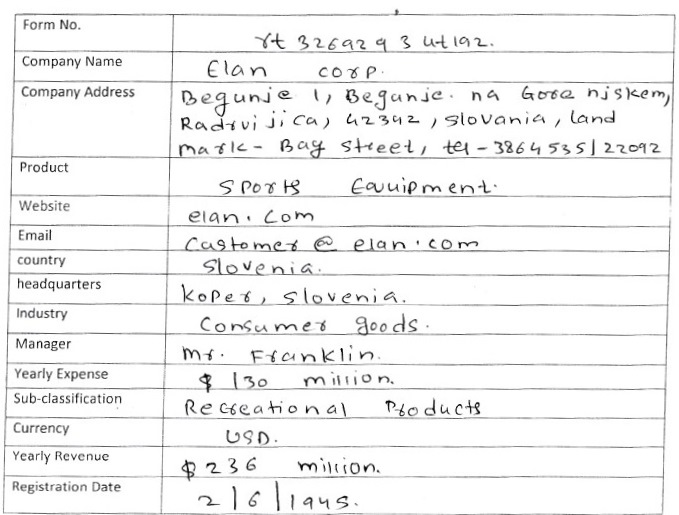 Form No. rt 3269293 ut192.
Company Name Elan corp.
Company Address Begunje 1, Begunje. na Gore njskem,
Radrvi ji ca, 42342, slovania, land
mark- Bay street, tel - 38645351 22092
Product Sports Eauuipment.
Website elan. com
Email Customer @ elan.com
country Slovenia.
headquarters koper, slovenia.
Industry Consumer goods.
Manager mr. Franklin.
Yearly Expense $ 130 million.
Sub-classification Recreational Products
Currency USD.
Yearly Revenue $ 236 million.
Registration Date 2/6/1945.